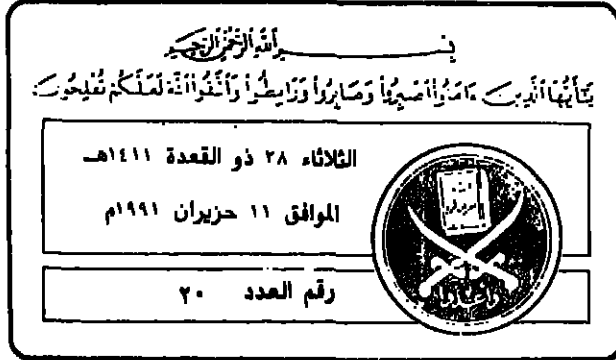 بِسْمِ اللَّهِ الرَّحْمَٰنِ الرَّحِيمِ
يَٰٓأَيُّهَا ٱلَّذِينَ ءَامَنُوا۟ ٱصْبِرُوا۟ وَصَابِرُوا۟ وَرَابِطُوا۟ وَٱتَّقُوا۟ ٱللَّهَ لَعَلَّكُمْ تُفْلِحُونَ
الثلاثاء ٢٨ ذو القعدة ١٤١١هـ
الموافق ١١ حزيران ١٩٩١م
رقم العدد ٢٠